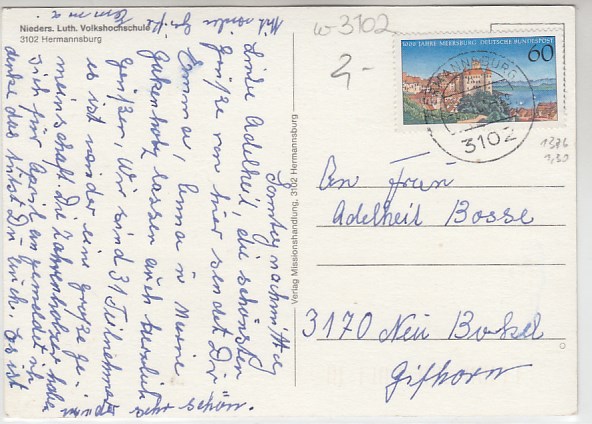 Nieders. Luth. Volkshochschule
3102 Hermannsburg
w 3102
2,-
1000 JAHRE MEERSBURG DEUTSCHE BUNDESPOST
60
HERMANNSBURG
3102
1376
1,30
Sonntag nachmittag
Liebe Adelheid, die schönsten
Grüße von hier sendet Dir
Emma, Anna u Meine
lassen auch herzlich
grüßen, Wir sind 31 Teilnehmer
es ist wieder eine große Ge-
meinschaft. Die haben
sich für April angemeldet ich
denke das tust Du auch. Es ist
schön.
Mit Grüße
Emma
Verlag Missionshandlung, 3102 Hermannsburg
An Frau
Adelheit Bosse
3170 Neu Bokel
Gifhorn